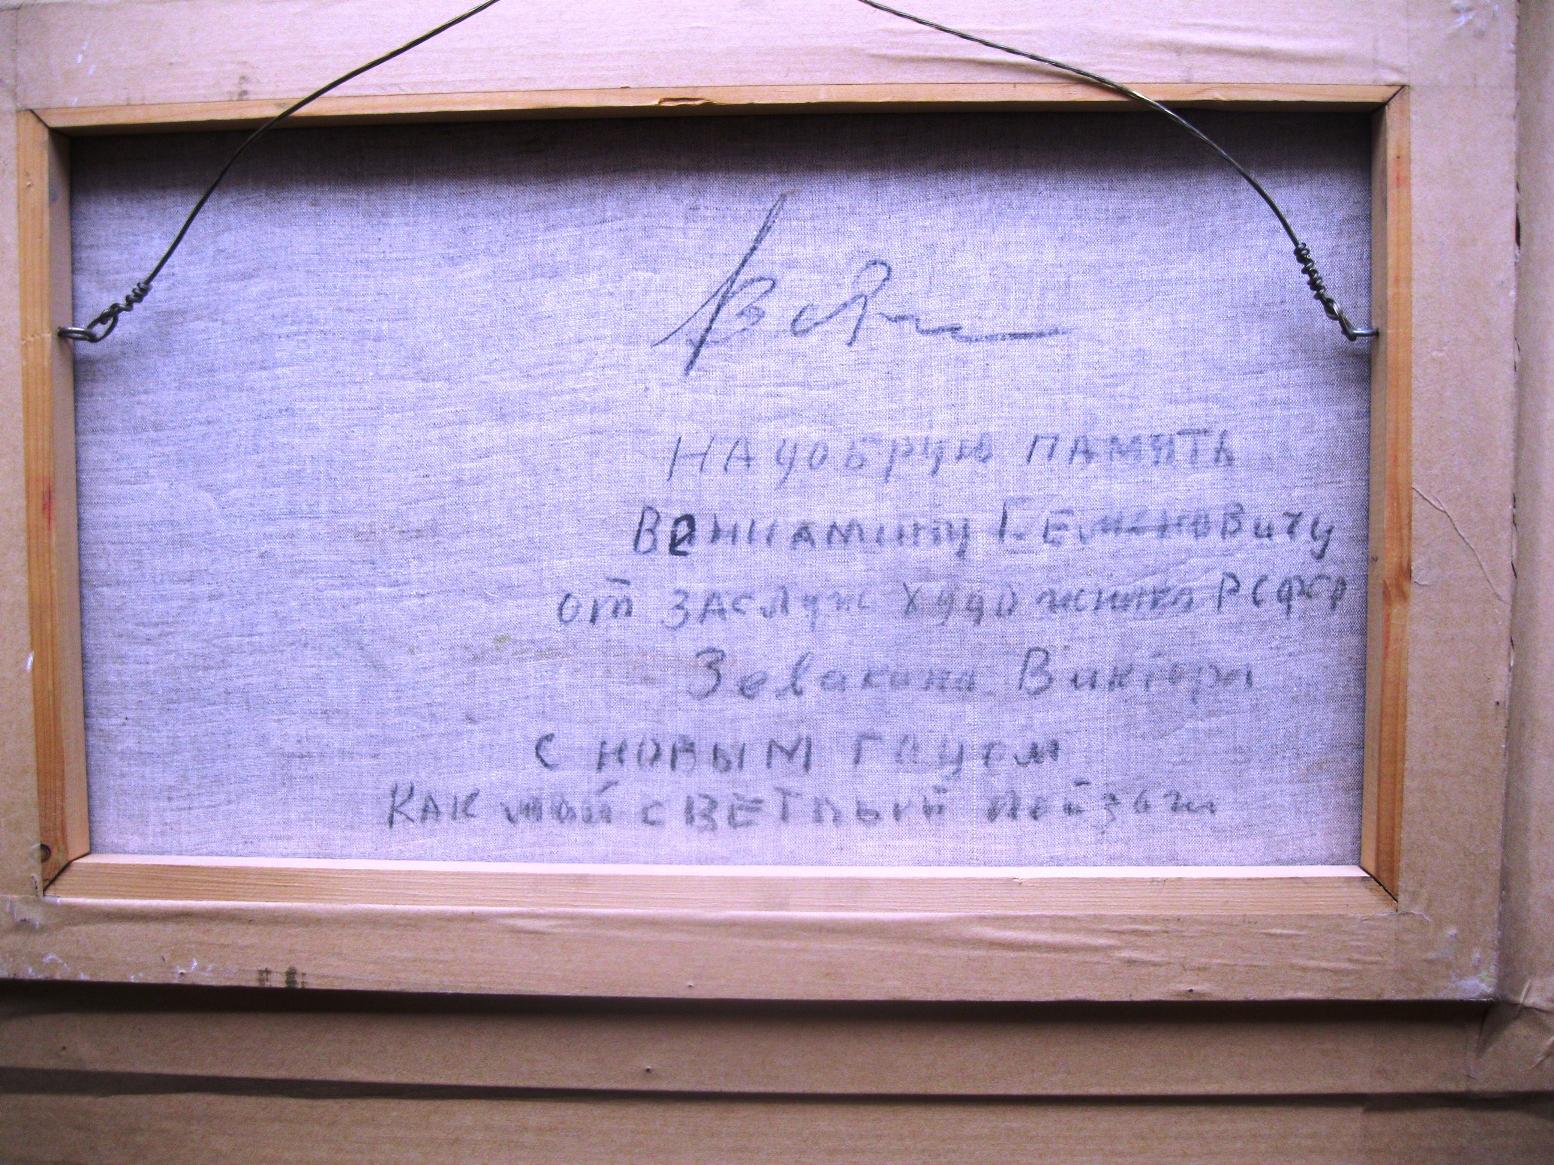 НА доБРую ПАМЯТЬ
ВеНИАМИНу СЕМеНОВИчу
от ЗАСЛуж ХудОжника РСФСР
Зевакина Виктора
С НОВЫМ ГОдом
КАК мой СВЕТЛЫЙ пейзаж